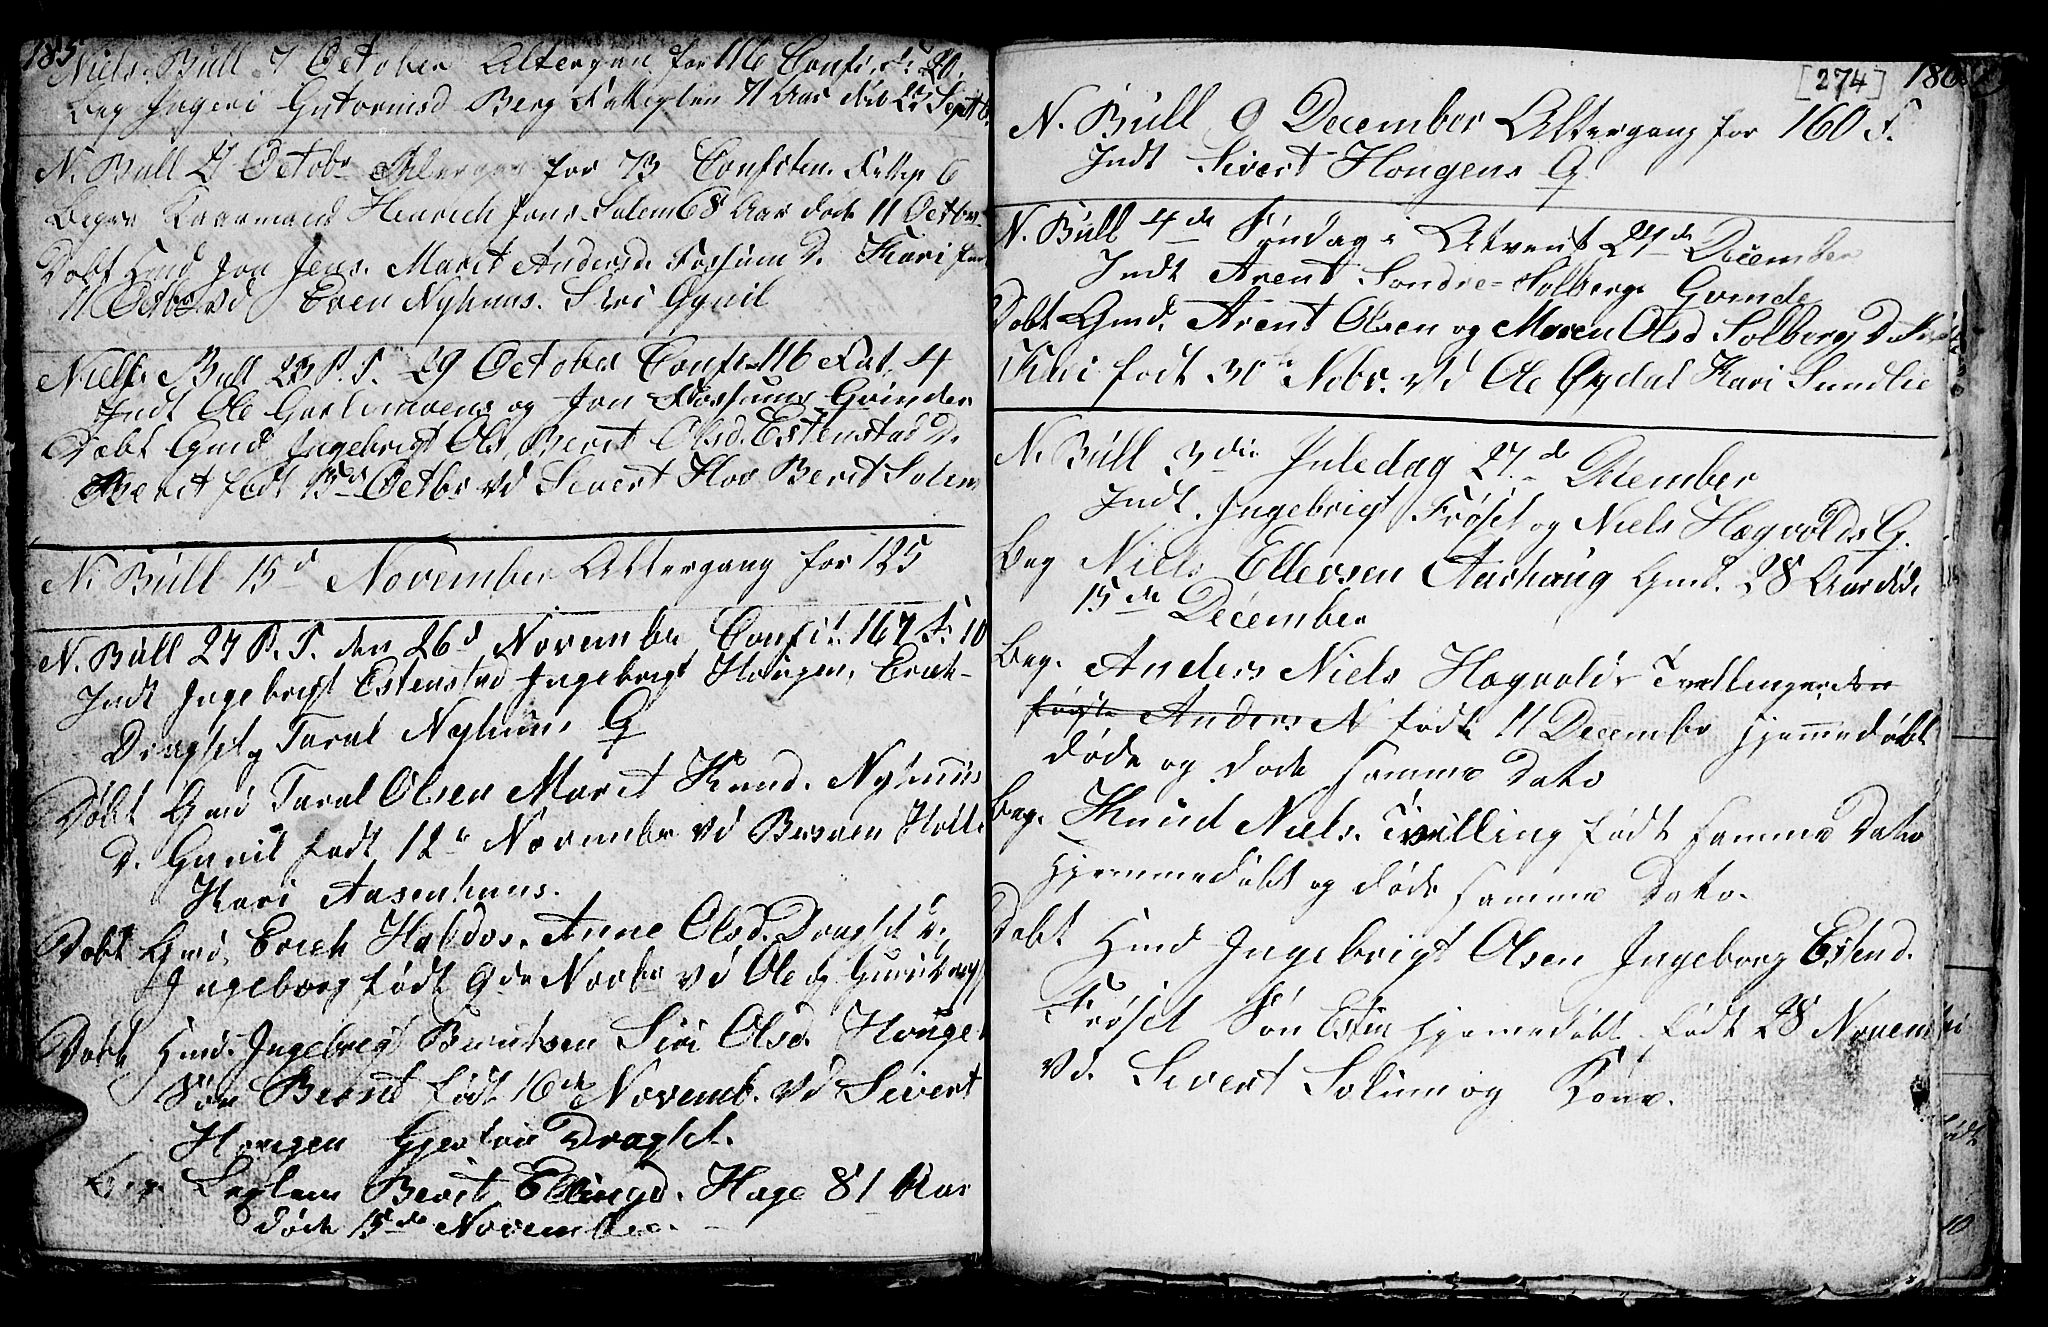 185
Niels Büll 7 October Altergan for 116 Conft. F. 20.
Beg Ingeri Gutormsd Berg Fattiglem 71 Aar død 23 Septb.
N. Büll 21 Octobr Altergan for 73 Confitten. Fattig 6
Beger Kaarmand Henrich Jons. Solem 68 Aar døde 11 Octbr
Døbt Hmd Jon Jens. Marit Andersd. Fossum D. Kari født
11 Octbr vd Even Nyhuus. Siri Gynil
Niels Bull 23 P. T. 29 October Conft 116 Fat. 4
Indt Ole Garlimoens og Jon Fossums Qvinder
Døbt Gmd Ingebrigt Ols. Berit Olsd. Estenstad D.
Berit født 15de Octbr vd Sivert Hov Berit Solem
N. Büll 15d November Altergang for 125
N. Büll 27 P. T. den 26d Novembr Confit. 167 F. 10
Indt Ingebrigt Estenstad Ingebrigt Hougen, Erich
Dragset og Taral Nyhuus Q
Døbt Gmd Taral Olsen Marit Knud. Nyhuus
D. Gunil født 12te Novembr vd Holte
Kari Aasenhuus.
Døbt Gmd. Erich Haldos. Anne Olsd. Dragset D.
Ingeborg født 9de Novbr vd Ole og Guru Drags
Døbt Hmd. Ingebrigt Berntsen Siri Olsd. Houge
Søn Bernt født 16de Novemb. vd Sivert
Hougen Gjertrud Dragset.
Beg Leglem Berit Ellingd. Hage 81 Aar
døde 15de November.
[274] 186
N. Büll 9 December Altergang for 160 F.
Indt Sivert Hougens Q
N. Büll 4de Søndag i Advent 24de December
Indt Arent Søndre-Solbergs Qvinde
Døbt Gmd. Arent Olsen og Maren Olsd Solberg D.
Kari født 30te Nobr. vd Ole Øydal Kari Sundlie
N. Büll 3die Juledag 27.de December
Indt. Ingebrigt Frøset og Niels Hægvolds Q.
Beg Niels Ellevsen Aarhaug Gmd. 28 Aar død.
15de December
Beg. Anders Niels Hægvolds Tvillinger den
første Anders N født 11 Decembr hjemmedøbt
døde og døde samme Dato
Beg. Knud Niels. Tvilling født samme Dato
Hjemmedøbt og døde samme Dato.
Døbt Hmd Ingebrigt Olsen Ingeborg Estend.
Frøset Søn Esten hjemmedøbt født 28 November
vd. Sivert Solem og Kone.